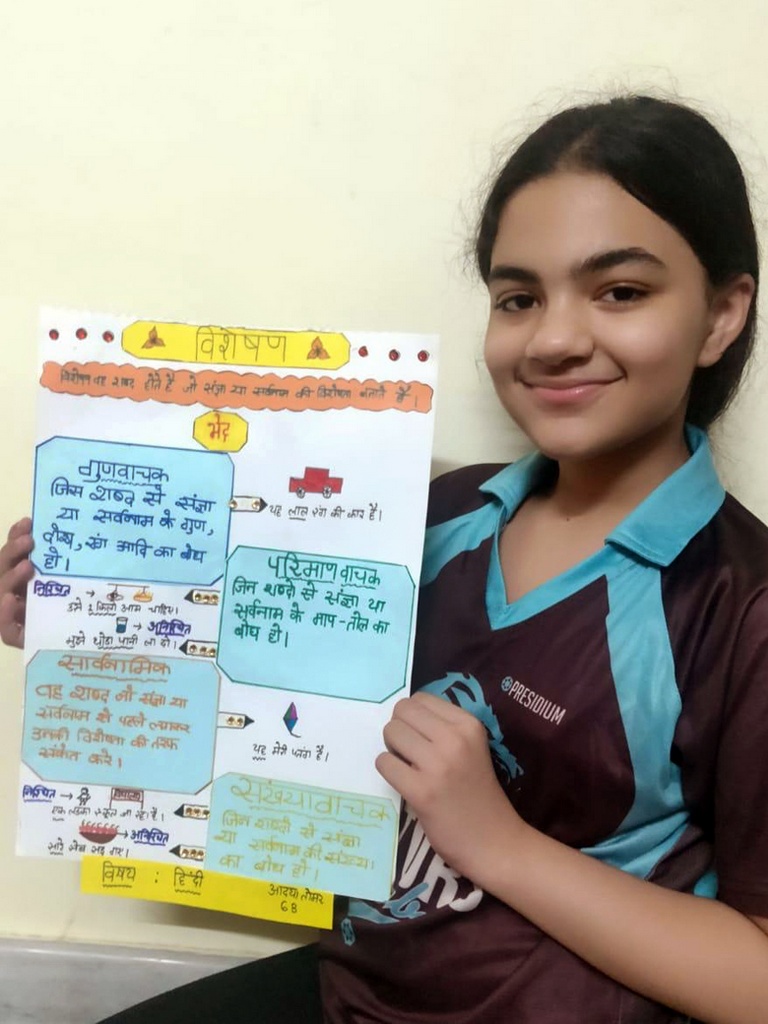 विशेषण
विशेषण वह शब्द होते हैं जो संज्ञा या सर्वनाम की विशेषता बताते हैं।
भेद
गुणवाचक
जिस शब्द से संज्ञा
या सर्वनाम के गुण,
दोष, रंग आदि का बोध
हो।
यह लाल रंग की कार है।
परिमाणवाचक
जिन शब्दों से संज्ञा या
सर्वनाम के माप-तोल का
बोध हो।
निश्चित
उसे 2 किलो आम चाहिए।
अनिश्चित
मुझे थोड़ा पानी ला दो।
सार्वनामिक
वह शब्द जो संज्ञा या
सर्वनाम से पहले लगकर
उनकी विशेषता की तरफ
संकेत करे।
यह मेरी पतंग है।
संख्यावाचक
जिन शब्दों से संज्ञा
या सर्वनाम की संख्या
का बोध हो।
निश्चित
एक लड़का स्कूल जा रहा है।
अनिश्चित
सारे सेब सड़ गए।
विषय : हिंदी
आदया तोमर
6B
PRESIDIUM